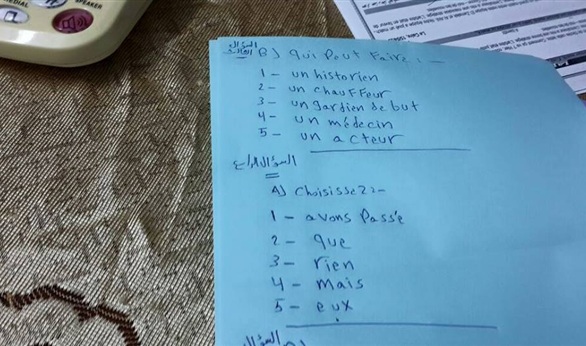 SPEAKER
السؤال
الثالث B) Qui Peut Faire : -
1 - un historien
2 - un chauffeur
3 - un gardien de but
4 - un médecin
5 - un acteur
السؤال الرابع
A) Choisissez :-
1 - avons Passé
2 - que
3 - rien
4 - mais
5 - eux
السؤال